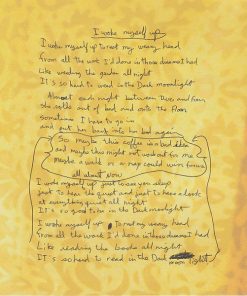 I woke myself up
I woke myself up To rest my weary head
From all the work I'd done in those dreams I had
Like weeding the garden all night
It's so hard to weed in the Dark moonlight
Almost each night between Two and four
She walks out of bed and onto the floor
sometimes I have to go in
and put her back into her bed again
So maybe this coffee is a bad idea
and maybe this might not work out for me
Maybe a walk or a nap could win
all about now
I woke myself up just to see you sleep
Just to hear the quiet and just to have a look
at everything quiet all night
It's so good to be in the Dark moonlight
I woke myself up To rest my weary head
From all the work I'd done in those dreams I had
Like reading the books all night
It's so hard to read in the Dark moonlight